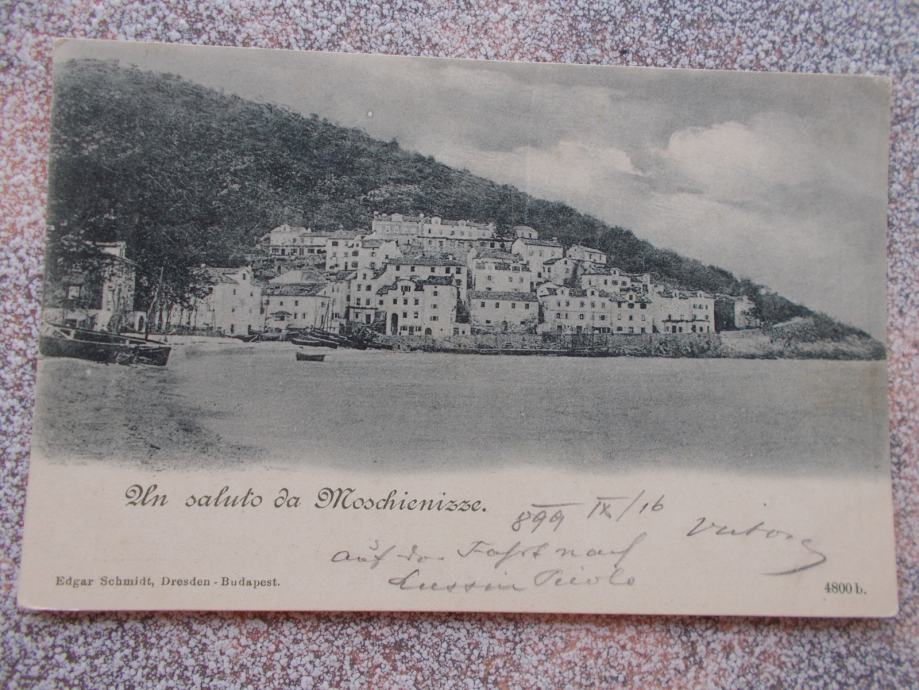 Un saluto da Moschienizze.
899 IX/16
auf der Fahrt nach
Lussin Piccolo
Edgar Schmidt, Dresden-Budapest.
4800 b.